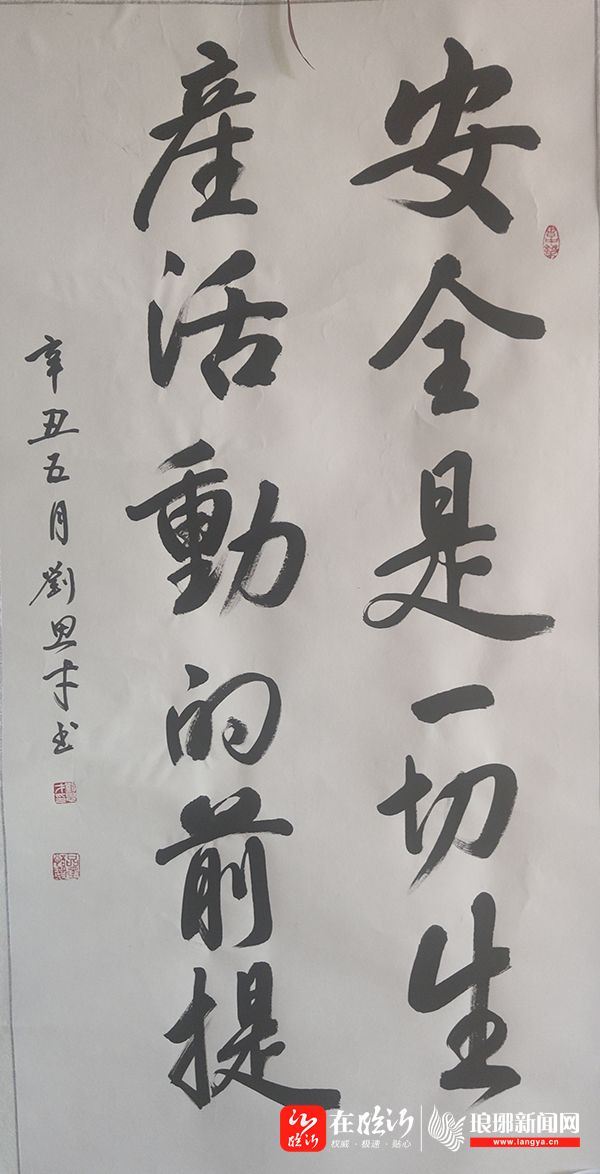 安全是一切生
產活動的前提
辛丑五月劉思才书
在临沂
权威·极速·贴心
琅琊新闻网
www.langya.cn